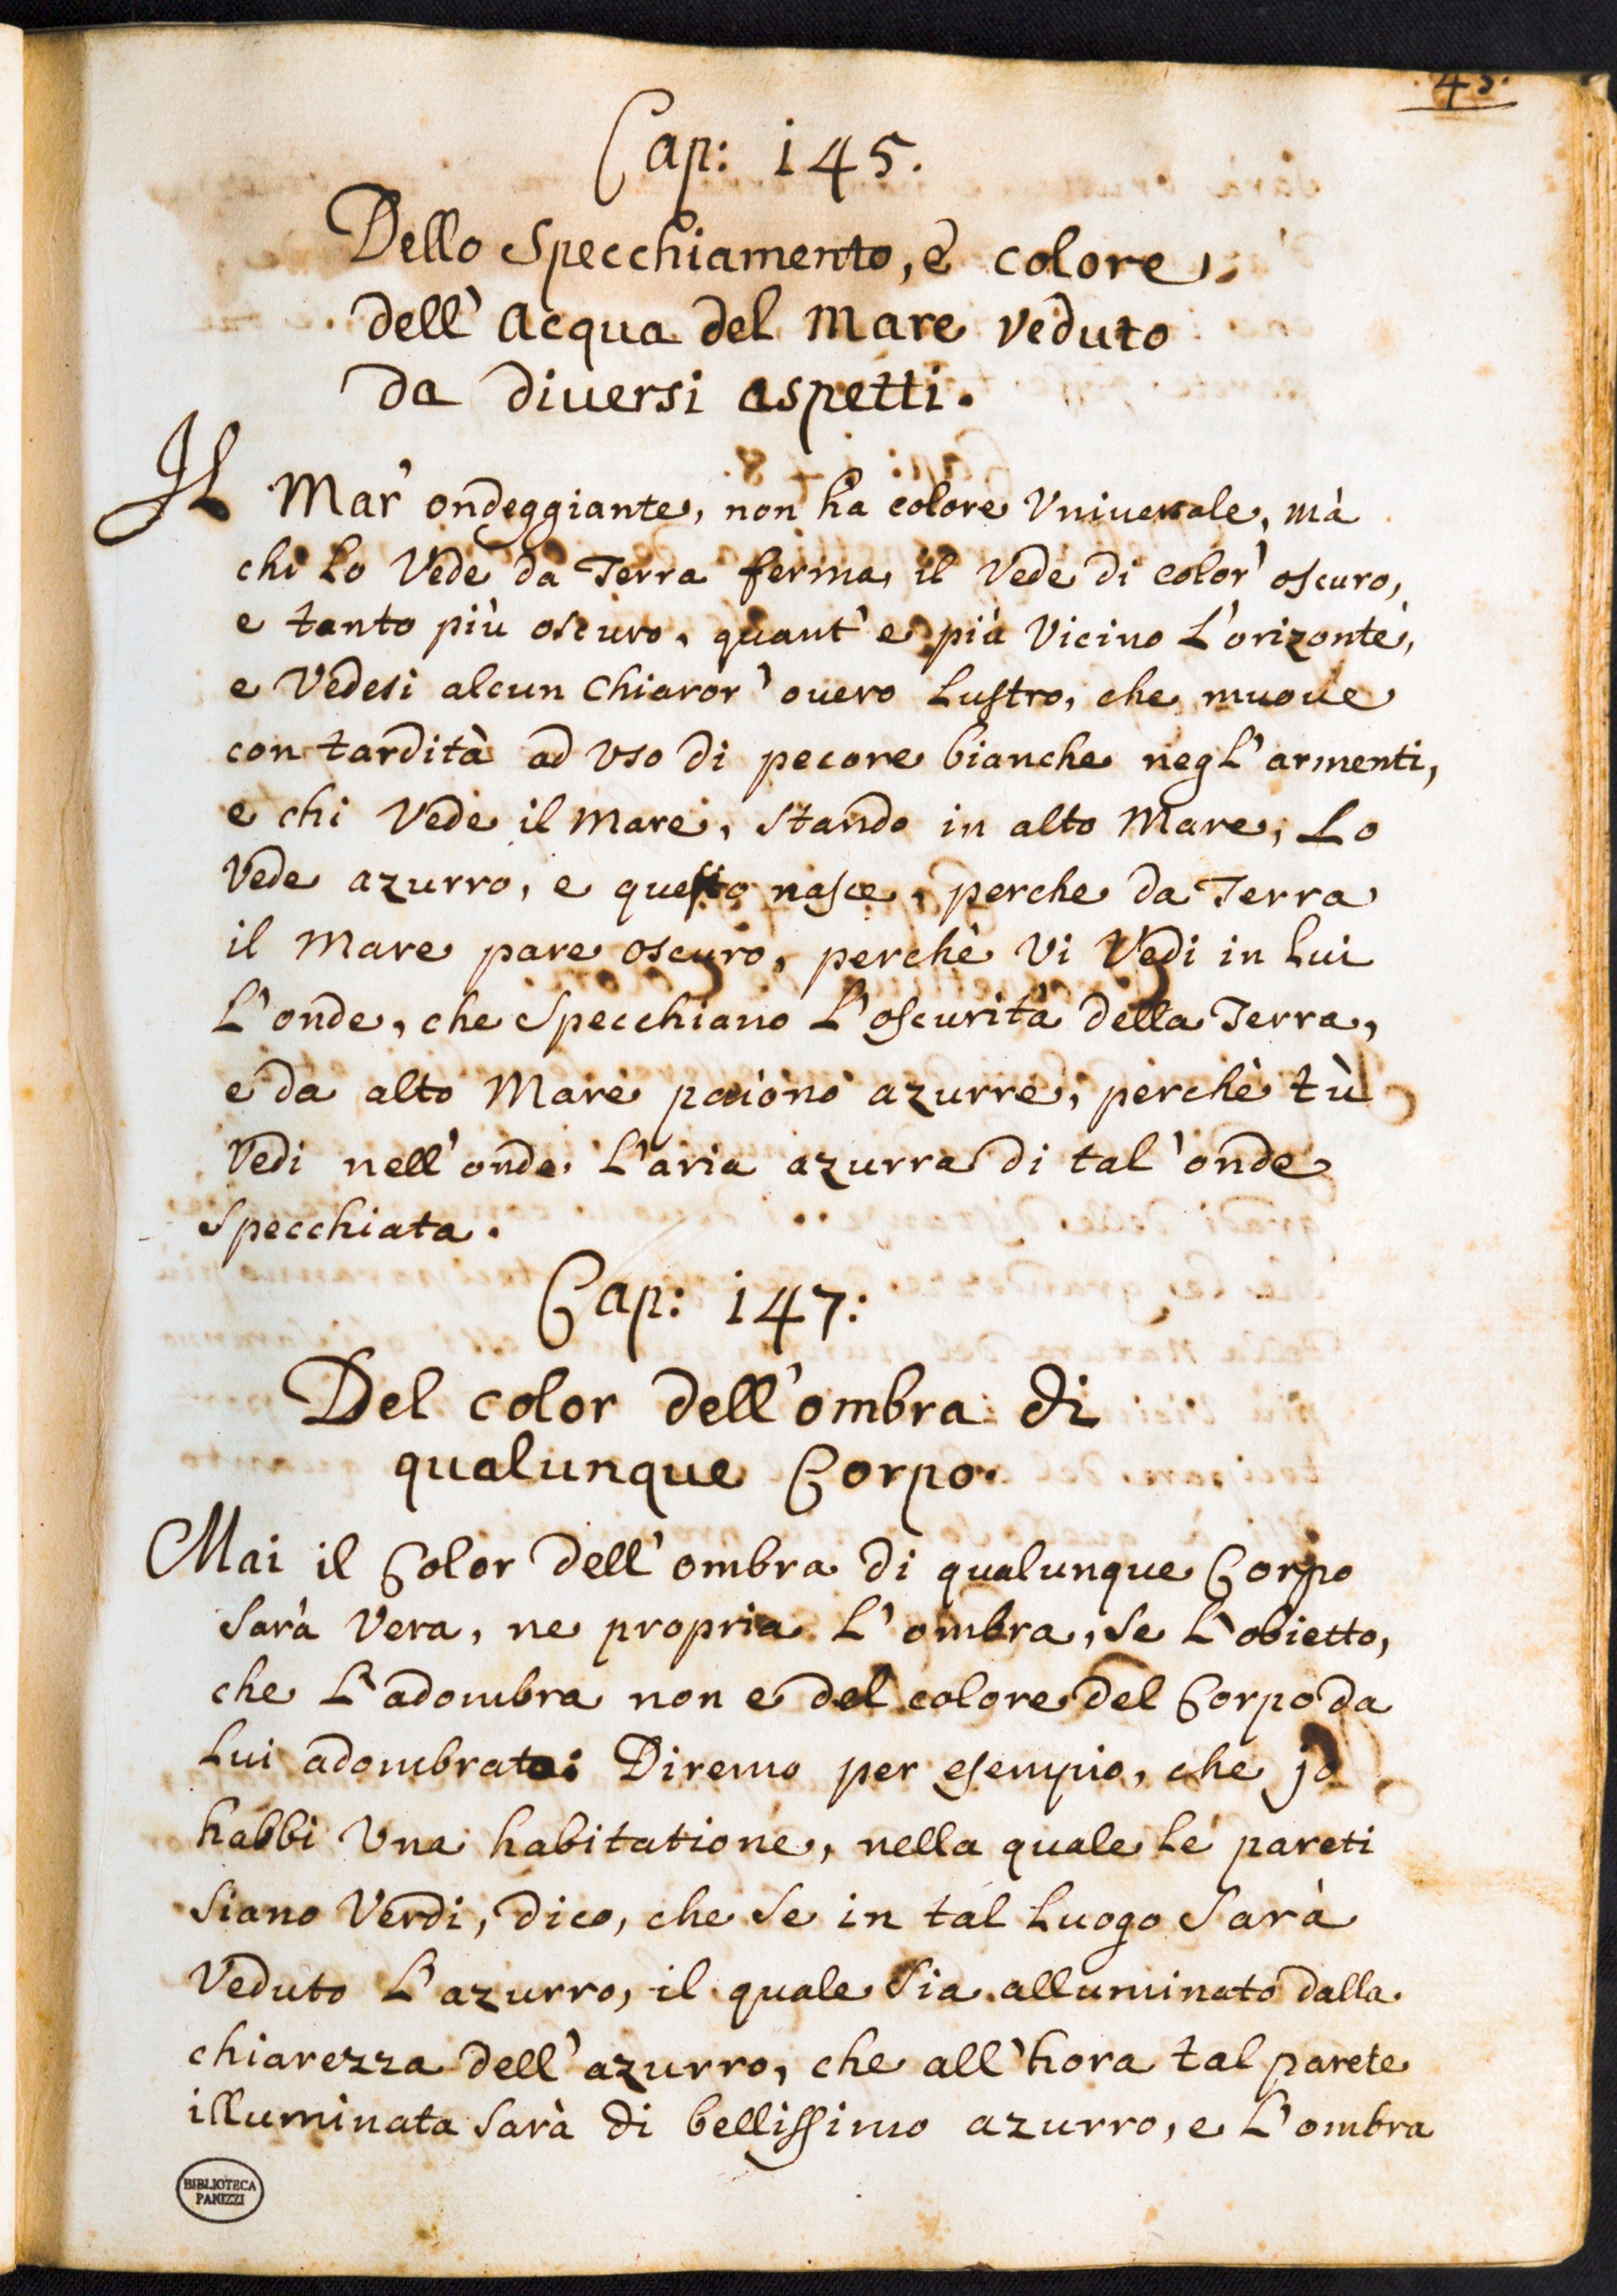 .45.
Cap: 145.
Dello Specchiamento, è colore
dell' Acqua del Mare veduto
da diuersi aspetti.
Il Mar' ondeggiante, non ha colore Vniuersale, mà
chi Lo Vede da Terra ferma, il Vede di color' oscuro,
e tanto più oscuro, quant' e più Vicino L'orizonte,
e Vedesi alcun Chiaror' ouero Lustro, che muoue
con tardità ad Vso di pecore bianche negl' armenti,
e chi Vede il Mare, stando in alto Mare, Lo
Vede azurro, e questo nasce, perche da Terra
il Mare pare oscuro, perchè Vi Vedi in Lui
L'onde, che Specchiano L'oscurità della Terra,
e da alto Mare paiono azurre, perchè tù
Vedi nell' onde L'aria azurra di tal' onde
Specchiata.
Cap: 147:
Del color dell'ombra di
qualunque Corpo.
Mai il Color dell' ombra di qualunque Corpo
Sarà Vera, ne propria L'ombra, Se L'obietto,
che L'adombra non e del colore del Corpo da
Lui adombrato: Diremo per esempio, che jo
habbi Vna habitatione, nella quale Le pareti
Siano Verdi, dico, che Se in tal Luogo Sarà
Veduto L'azurro, il quale Sia alluminato dalla
chiarezza dell' azurro, che all'hora tal parete
illuminata Sarà di bellissimo azurro, e L'ombra
BIBLIOTECA
PANIZZI